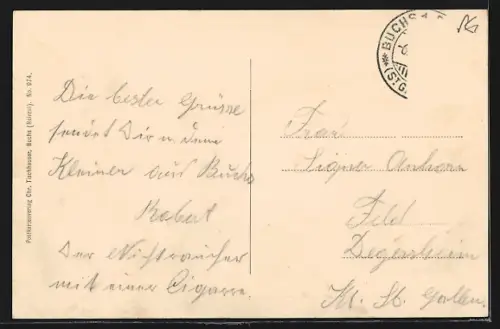 BUCHS
(St. G.
Die besten Grüsse
sendet Dir u. dem
Kleinen aus Buchs
Robert
Der Nichtraucher
mit einer Cigarre.
Frau
Signer Anhorn
Feld
Degersheim
Kt. St. Gallen.
Postkartenverlag Chr. Tischhauser, Buchs (Rheint). No. 974.